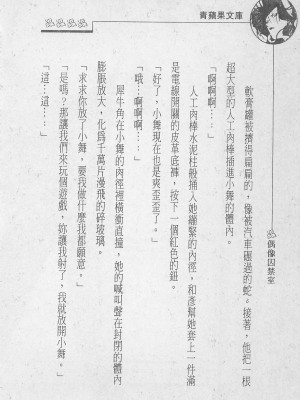 青蘋果文庫
偶像囚禁室
軟膏罐被擠得扁扁的，像被汽車碾過的蛇。接著，他把一根
超大型的人工肉棒插進小舞的體內。
「啊啊啊……」
人工肉棒水泥柱般捅入她繃緊的內徑，和彥幫她套上一件滿
是電線開關的皮革底褲，按下一個紅色的鈕。
「好了，小舞現在也是爽歪歪了。」
「哦…啊啊啊……」
犀牛角在小舞的肉徑裡橫衝直撞，她的喊叫聲在封閉的體內
膨脹放大，化為千萬片漫飛的碎玻璃。
「求求你放了小舞，要我做什麼我都願意。」
「是嗎？那讓我們來玩個遊戲，妳讓我射了，我就放開小舞。」
「這…這…」